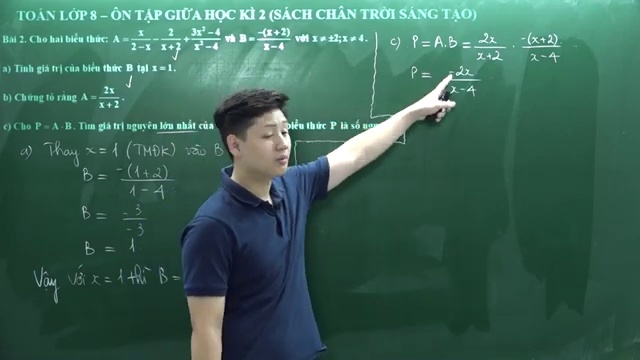 TOÁN LỚP 8 – ÔN TẬP GIỮA HỌC KÌ 2 (SÁCH CHÂN TRỜI SÁNG TẠO)
Bài 2. Cho hai biểu thức: A = x/(2-x) - 2/(x+2) + (3x²-4)/(x²-4) và B = -(x+2)/(x-4) với x ≠ ±2; x ≠ 4.
a) Tính giá trị của biểu thức B tại x = 1.
b) Chứng tỏ rằng A = 2x/(x+2).
c) Cho P = A · B. Tìm giá trị nguyên lớn nhất của biểu thức P là số
a) Thay x = 1 (TMĐK) vào B
B = -(1+2)/(1-4)
B = -3/-3
B = 1
Vậy với x = 1 thì B =
c) P = A.B = 2x/(x+2) · -(x+2)/(x-4)
P = -2x/(x-4)